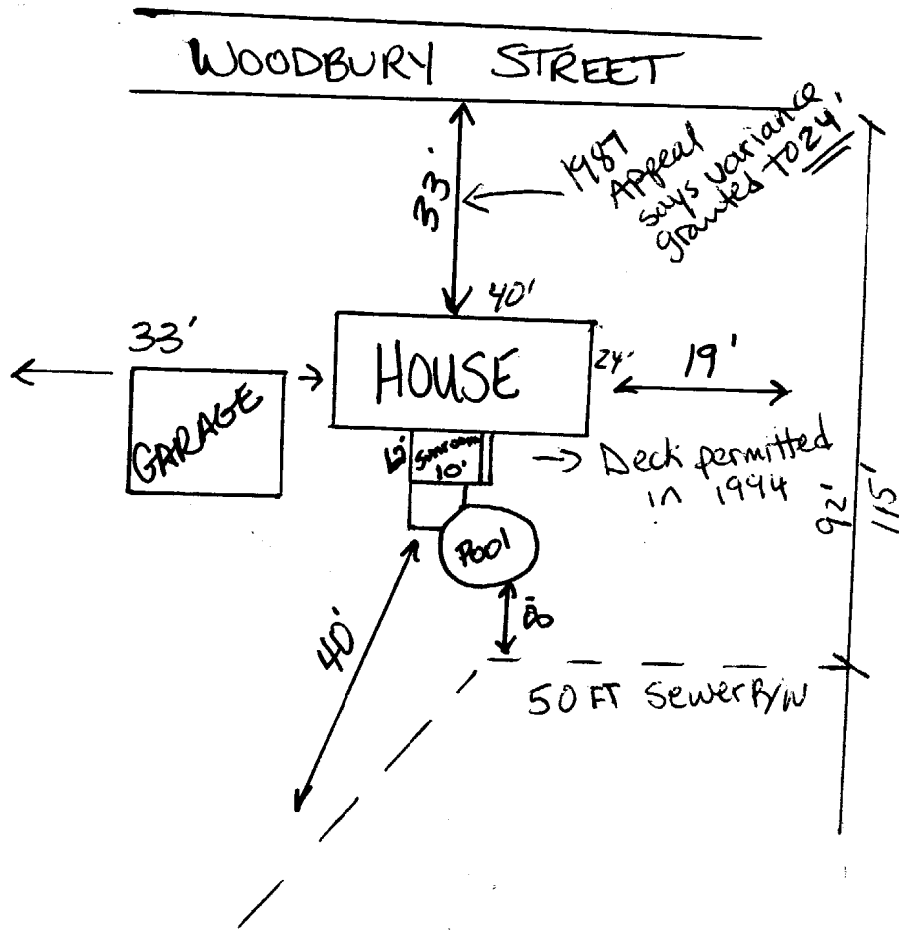 WOODBURY STREET
33'
1987
Appeal
says variance
granted to 24'
40'
33'
HOUSE
24'
19'
GARAGE
Sunroom
10'
Deck permitted
in 1994
92'
115'
Pool
8'
40'
50 FT Sewer R/W